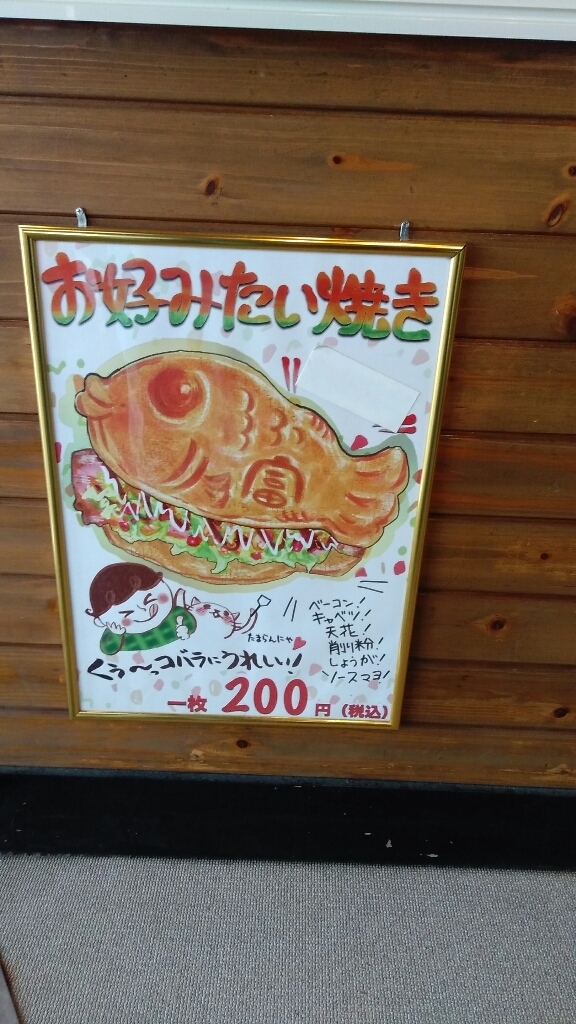 お好みたい焼き
富
ベーコン!
キャベツ!
天花!
削り粉!
しょうが!
ソースマヨ!
たまらんにゃ
くぅ〜っコバラにうれしい!
一枚 200円(税込)